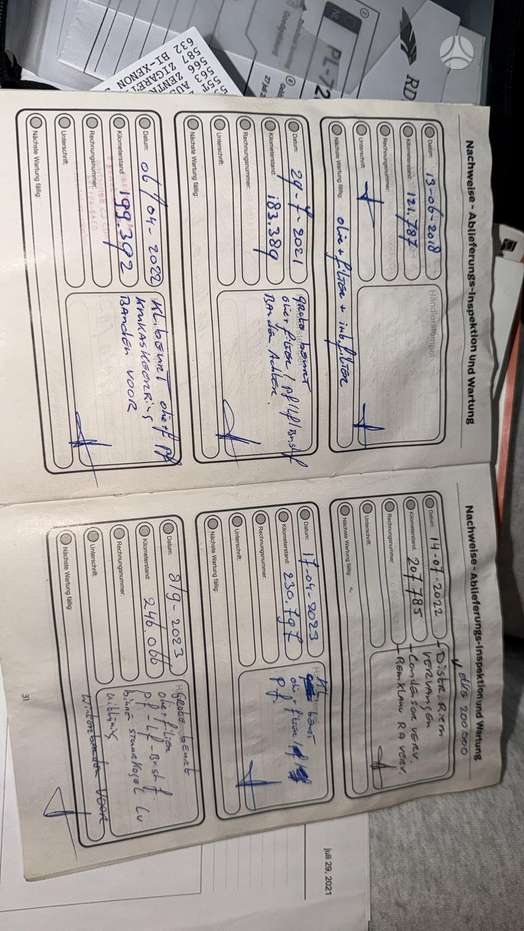 Nachweise - Ablieferungs-Inspektion und Wartung
Datum: 13-06-2018
Kilometerstand: 121.787
Rechnungsnummer:
Unterschrift:
Nächste Wartung fällig:
olie + filter + int. filter
Datum: 29-7-2021
Kilometerstand: 183.389
Rechnungsnummer:
Unterschrift:
Nächste Wartung fällig:
Grote beurt
olie + filter / pf / lf / Bnstf
Banden Achter
Datum: 06/04-2022
Kilometerstand: 199.392
Rechnungsnummer:
Unterschrift:
Nächste Wartung fällig:
Kl. beurt olie + pf
Banden voor
Nachweise - Ablieferungs-Inspektion und Wartung
dis 200.000
Datum: 14-07-2022
Kilometerstand: 207.785
Rechnungsnummer:
Unterschrift:
Nächste Wartung fällig:
- Distr. Riem
vervangen
- Condensor verv.
- Remklauw RA verv.
Datum: 17-04-2023
Kilometerstand: 230.797
Rechnungsnummer:
Unterschrift:
Nächste Wartung fällig:
Kl beurt
olie filter
pf
Datum: 8/9-2023
Kilometerstand: 246.066
Rechnungsnummer:
Unterschrift:
Nächste Wartung fällig:
Grote beurt
olie + filter
pf - Lf - Bnstf
binnen stuurkogel LV
uitlijning
Winterbanden voor
31
juli 29, 2021
PL-72
RD
BI-XENON
632
587
566
563